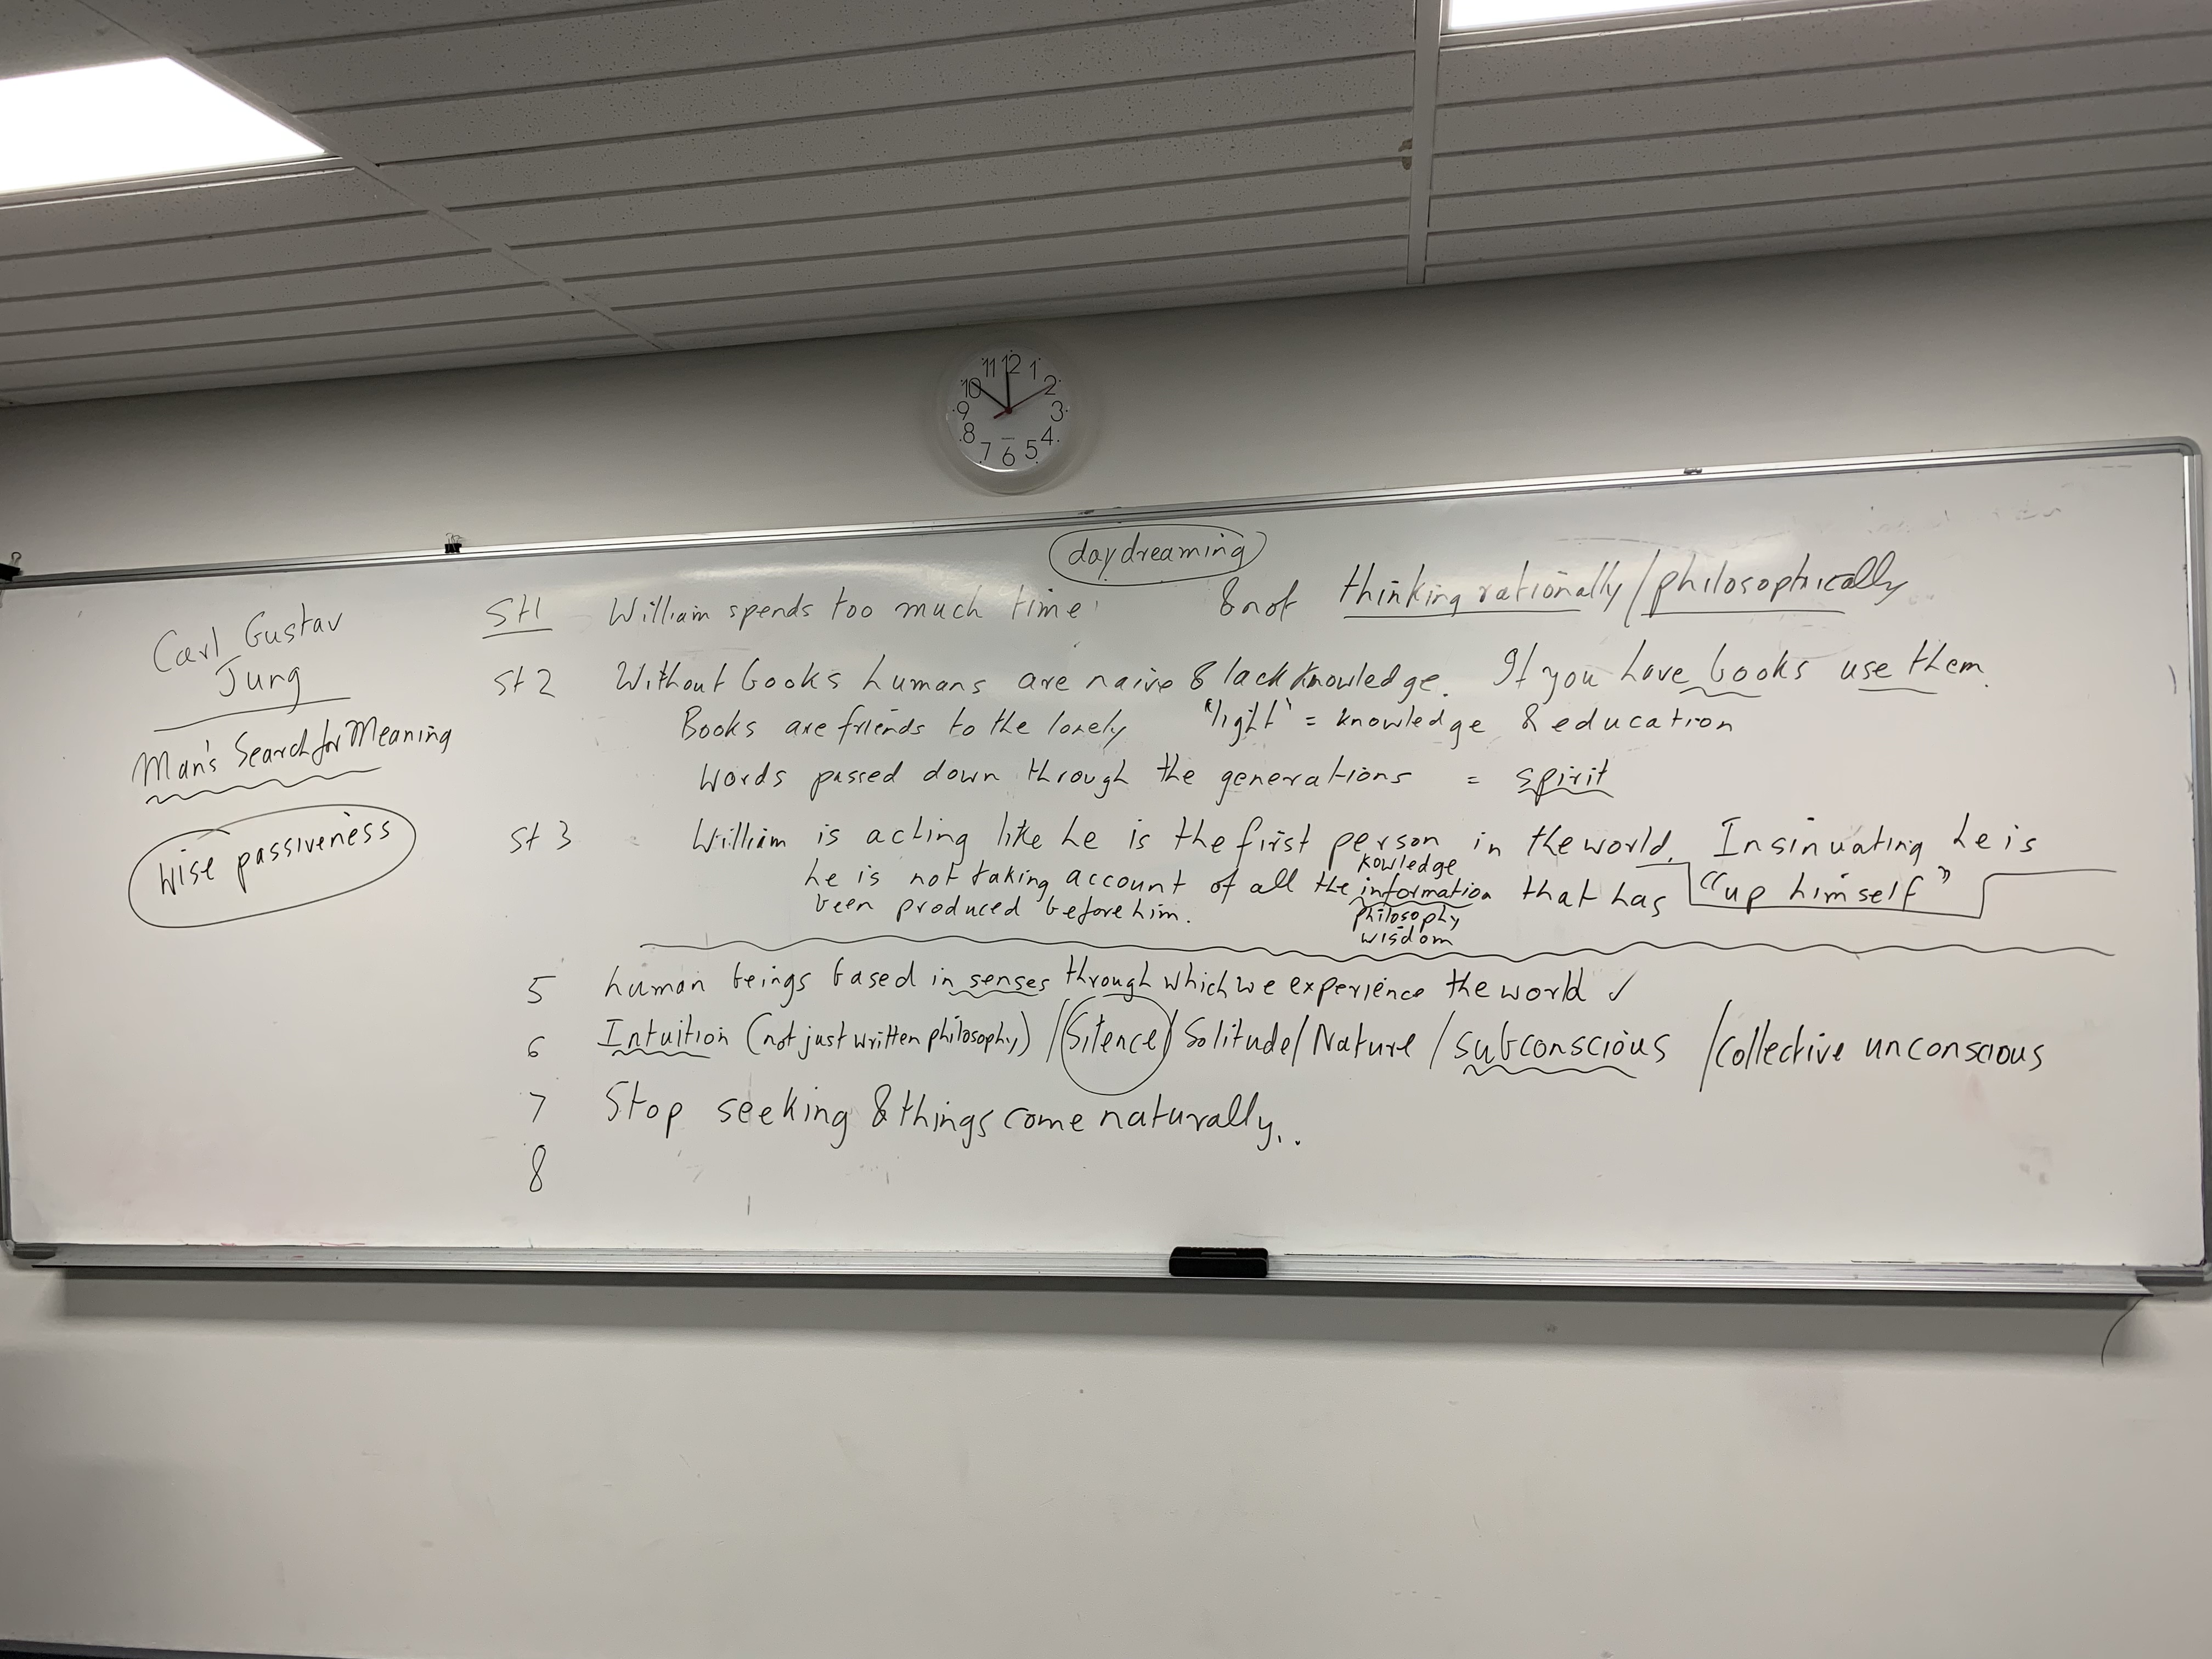 11 12 1
10 2
9 3
8 4
7 6 5
daydreaming
St1 William spends too much time & not thinking rationally/philosophically
Carl Gustav
Jung
Man's Search for Meaning
Wise passiveness
St 2 Without books humans are naive & lack knowledge. If you have books use them.
Books are friends to the lonely "light" = knowledge & education
Words passed down through the generations = spirit
St 3 William is acting like he is the first person in the world. Insinuating he is
kowledge
he is not taking account of all the information that has "up himself"
been produced before him. philosophy
wisdom
5 human beings based in senses through which we experience the world ✓
6 Intuition (not just written philosophy) / Silence / Solitude / Nature / subconscious / collective unconscious
7 Stop seeking & things come naturally..
8